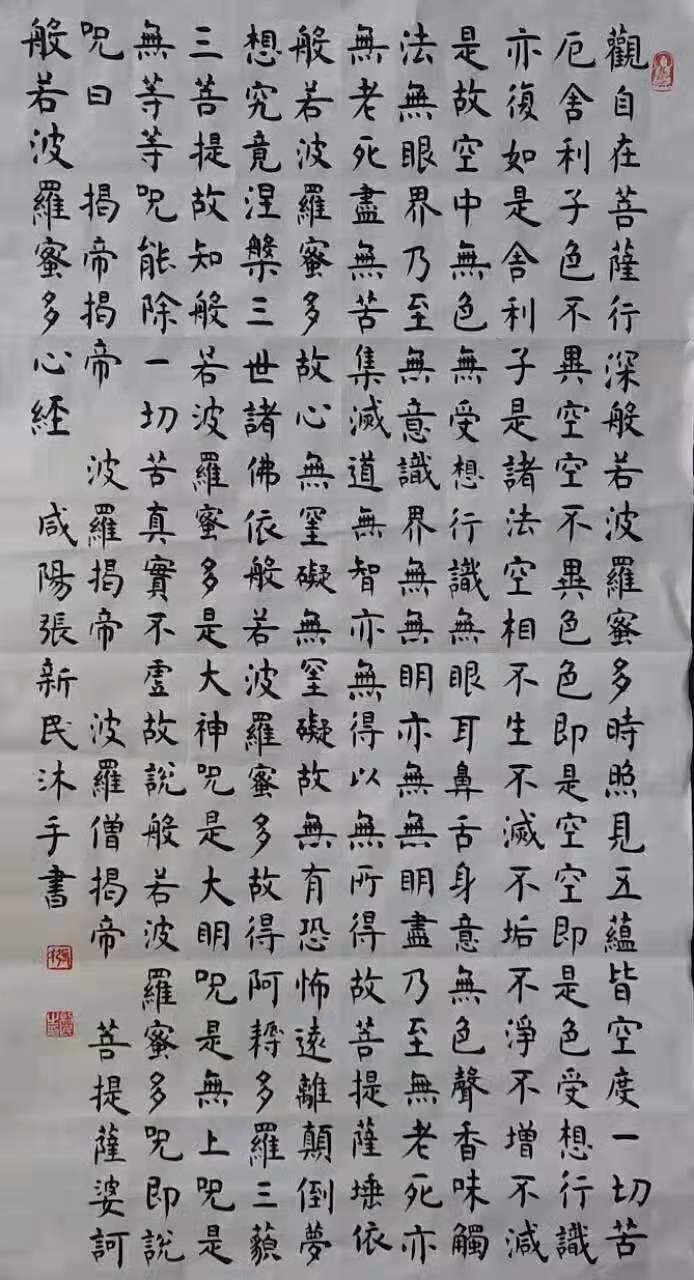 觀自在菩薩行深般若波羅蜜多時照見五蘊皆空度一切苦
厄舍利子色不異空空不異色色即是空空即是色受想行識
亦復如是舍利子是諸法空相不生不滅不垢不淨不增不減
是故空中無色無受想行識無眼耳鼻舌身意無色聲香味觸
法無眼界乃至無意識界無無眀亦無無眀盡乃至無老死亦
無老死盡無苦集滅道無智亦無得以無所得故菩提薩埵依
般若波羅蜜多故心無罣礙無罣礙故無有恐怖遠離顛倒夢
想究竟涅槃三世諸佛依般若波羅蜜多故得阿耨多羅三藐
三菩提故知般若波羅蜜多是大神呪是大眀呪是無上呪是
無等等呪能除一切苦真實不虛故說般若波羅蜜多呪即說
呪曰 揭帝揭帝 波羅揭帝 波羅僧揭帝 菩提薩婆訶
般若波羅蜜多心經 咸陽張新民沐手書